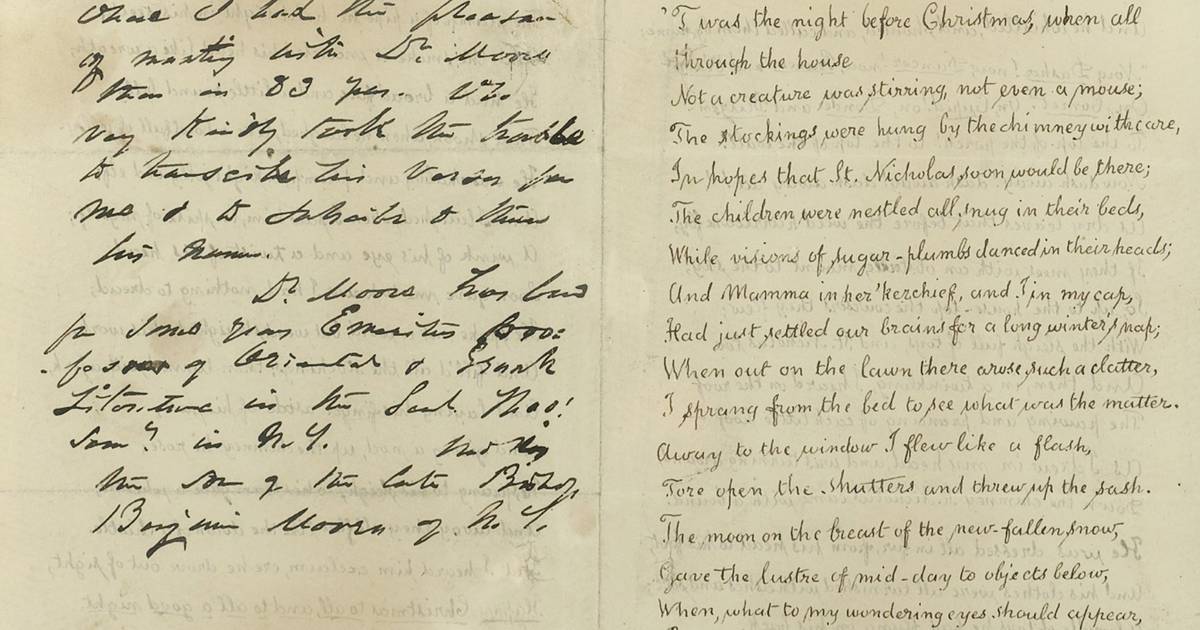 I had the pleasure
of meeting with Dr. Moore
then in 83 year. Who
very kindly took the trouble
to transcribe his verses for
me & to subscribe to them
his name.
Dr. Moore has been
for some years Emeritus Pro=
fessor of Oriental & Greek
Literature in the Genl. Theol.
Semy. in N.Y.
the son of the late Bishop
Benjamin Moore of N.Y.
'T was the night before Christmas, when all
through the house
Not a creature was stirring, not even a mouse;
The stockings were hung by the chimney with care,
In hopes that St. Nicholas soon would be there;
The children were nestled all snug in their beds,
While visions of sugar-plumbs danced in their heads;
And Mamma in her 'kerchief, and I in my cap,
Had just settled our brains for a long winter's nap;
When out on the lawn there arose such a clatter,
I sprang from the bed to see what was the matter.
Away to the window I flew like a flash,
Tore open the shutters and threw up the sash.
The moon on the breast of the new-fallen snow,
Gave the lustre of mid-day to objects below,
When, what to my wondering eyes should appear,